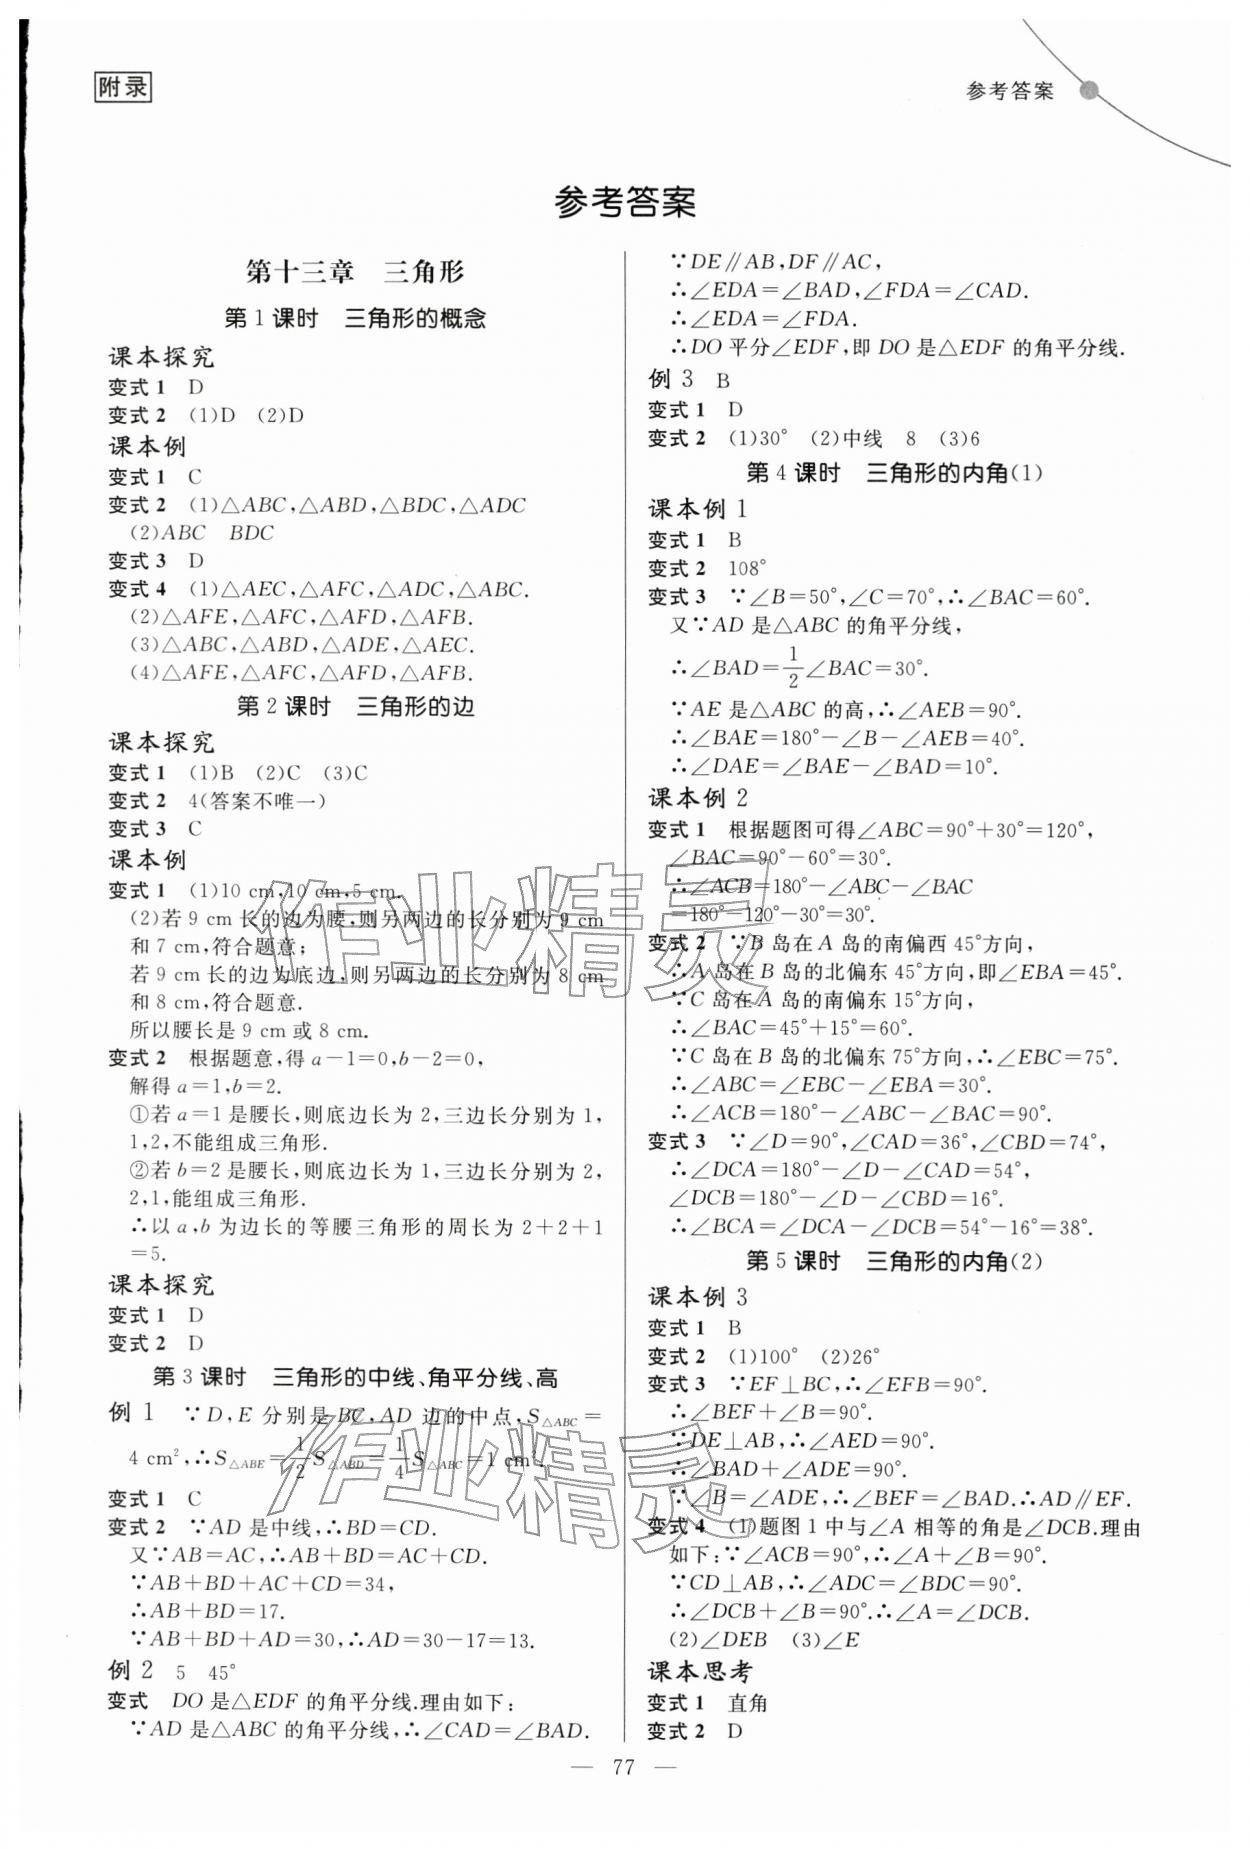 附录
参考答案
参考答案
第十三章　三角形
第 1 课时　三角形的概念
课本探究
变式 1　D
变式 2　(1)D　(2)D
课本例
变式 1　C
变式 2　(1)△ABC,△ABD,△BDC,△ADC
(2)ABC　BDC
变式 3　D
变式 4　(1)△AEC,△AFC,△ADC,△ABC.
(2)△AFE,△AFC,△AFD,△AFB.
(3)△ABC,△ABD,△ADE,△AEC.
(4)△AFE,△AFC,△AFD,△AFB.
第 2 课时　三角形的边
课本探究
变式 1　(1)B　(2)C　(3)C
变式 2　4(答案不唯一)
变式 3　C
课本例
变式 1　(1)10 cm,10 cm,5 cm.
(2)若 9 cm 长的边为腰,则另两边的长分别为 9 cm
和 7 cm,符合题意;
若 9 cm 长的边为底边,则另两边的长分别为 8 cm
和 8 cm,符合题意.
所以腰长是 9 cm 或 8 cm.
变式 2　根据题意,得 a－1＝0,b－2＝0,
解得 a＝1,b＝2.
①若 a＝1 是腰长,则底边长为 2,三边长分别为 1,
1,2,不能组成三角形.
②若 b＝2 是腰长,则底边长为 1,三边长分别为 2,
2,1,能组成三角形.
∴以 a,b 为边长的等腰三角形的周长为 2＋2＋1
＝5.
课本探究
变式 1　D
变式 2　D
第 3 课时　三角形的中线、角平分线、高
例 1　∵D,E 分别是 BC,AD 边的中点,S△ABC＝
4 cm²,∴S△ABE＝1/2 S△ABD＝1/4 S△ABC＝1 cm².
变式 1　C
变式 2　∵AD 是中线,∴BD＝CD.
又∵AB＝AC,∴AB＋BD＝AC＋CD.
∵AB＋BD＋AC＋CD＝34,
∴AB＋BD＝17.
∵AB＋BD＋AD＝30,∴AD＝30－17＝13.
例 2　5　45°
变式　DO 是△EDF 的角平分线.理由如下:
∵AD 是△ABC 的角平分线,∴∠CAD＝∠BAD.
∵DE∥AB,DF∥AC,
∴∠EDA＝∠BAD,∠FDA＝∠CAD.
∴∠EDA＝∠FDA.
∴DO 平分∠EDF,即 DO 是△EDF 的角平分线.
例 3　B
变式 1　D
变式 2　(1)30°　(2)中线　8　(3)6
第 4 课时　三角形的内角(1)
课本例 1
变式 1　B
变式 2　108°
变式 3　∵∠B＝50°,∠C＝70°,∴∠BAC＝60°.
又∵AD 是△ABC 的角平分线,
∴∠BAD＝1/2∠BAC＝30°.
∵AE 是△ABC 的高,∴∠AEB＝90°.
∴∠BAE＝180°－∠B－∠AEB＝40°.
∴∠DAE＝∠BAE－∠BAD＝10°.
课本例 2
变式 1　根据题图可得∠ABC＝90°＋30°＝120°,
∠BAC＝90°－60°＝30°.
∴∠ACB＝180°－∠ABC－∠BAC
＝180°－120°－30°＝30°.
变式 2　∵B 岛在 A 岛的南偏西 45°方向,
∴A 岛在 B 岛的北偏东 45°方向,即∠EBA＝45°.
∵C 岛在 A 岛的南偏东 15°方向,
∴∠BAC＝45°＋15°＝60°.
∵C 岛在 B 岛的北偏东 75°方向,∴∠EBC＝75°.
∴∠ABC＝∠EBC－∠EBA＝30°.
∴∠ACB＝180°－∠ABC－∠BAC＝90°.
变式 3　∵∠D＝90°,∠CAD＝36°,∠CBD＝74°,
∴∠DCA＝180°－∠D－∠CAD＝54°,
∠DCB＝180°－∠D－∠CBD＝16°.
∴∠BCA＝∠DCA－∠DCB＝54°－16°＝38°.
第 5 课时　三角形的内角(2)
课本例 3
变式 1　B
变式 2　(1)100°　(2)26°
变式 3　∵EF⊥BC,∴∠EFB＝90°.
∴∠BEF＋∠B＝90°.
∵DE⊥AB,∴∠AED＝90°.
∴∠BAD＋∠ADE＝90°.
∵∠B＝∠ADE,∴∠BEF＝∠BAD.∴AD∥EF.
变式 4　(1)题图 1 中与∠A 相等的角是∠DCB.理由
如下:∵∠ACB＝90°,∴∠A＋∠B＝90°.
∵CD⊥AB,∴∠ADC＝∠BDC＝90°.
∴∠DCB＋∠B＝90°.∴∠A＝∠DCB.
(2)∠DEB　(3)∠E
课本思考
变式 1　直角
变式 2　D
— 77 —
作业精灵
作业精灵